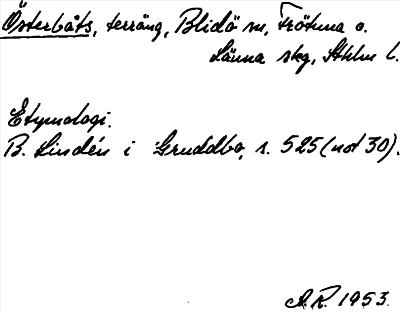 Österbåts, terräng, Blidö sn, Frötuna o.
Länna skg, Sthlm l.
Etymologi.
B. Lindén i Gruddbo, s. 525 (not 30).
A.R. 1953.